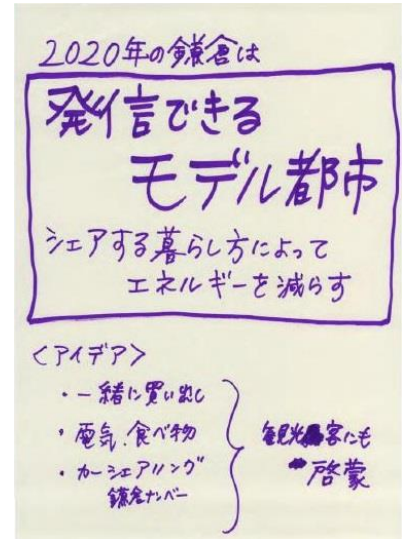 2020年の鎌倉は
発信できる
モデル都市
シェアする暮らし方によって
エネルギーを減らす
<アイデア>
・一緒に買い出し
・電気、食べ物
・カーシェアリング
鎌倉ナンバー
観光客にも
啓蒙